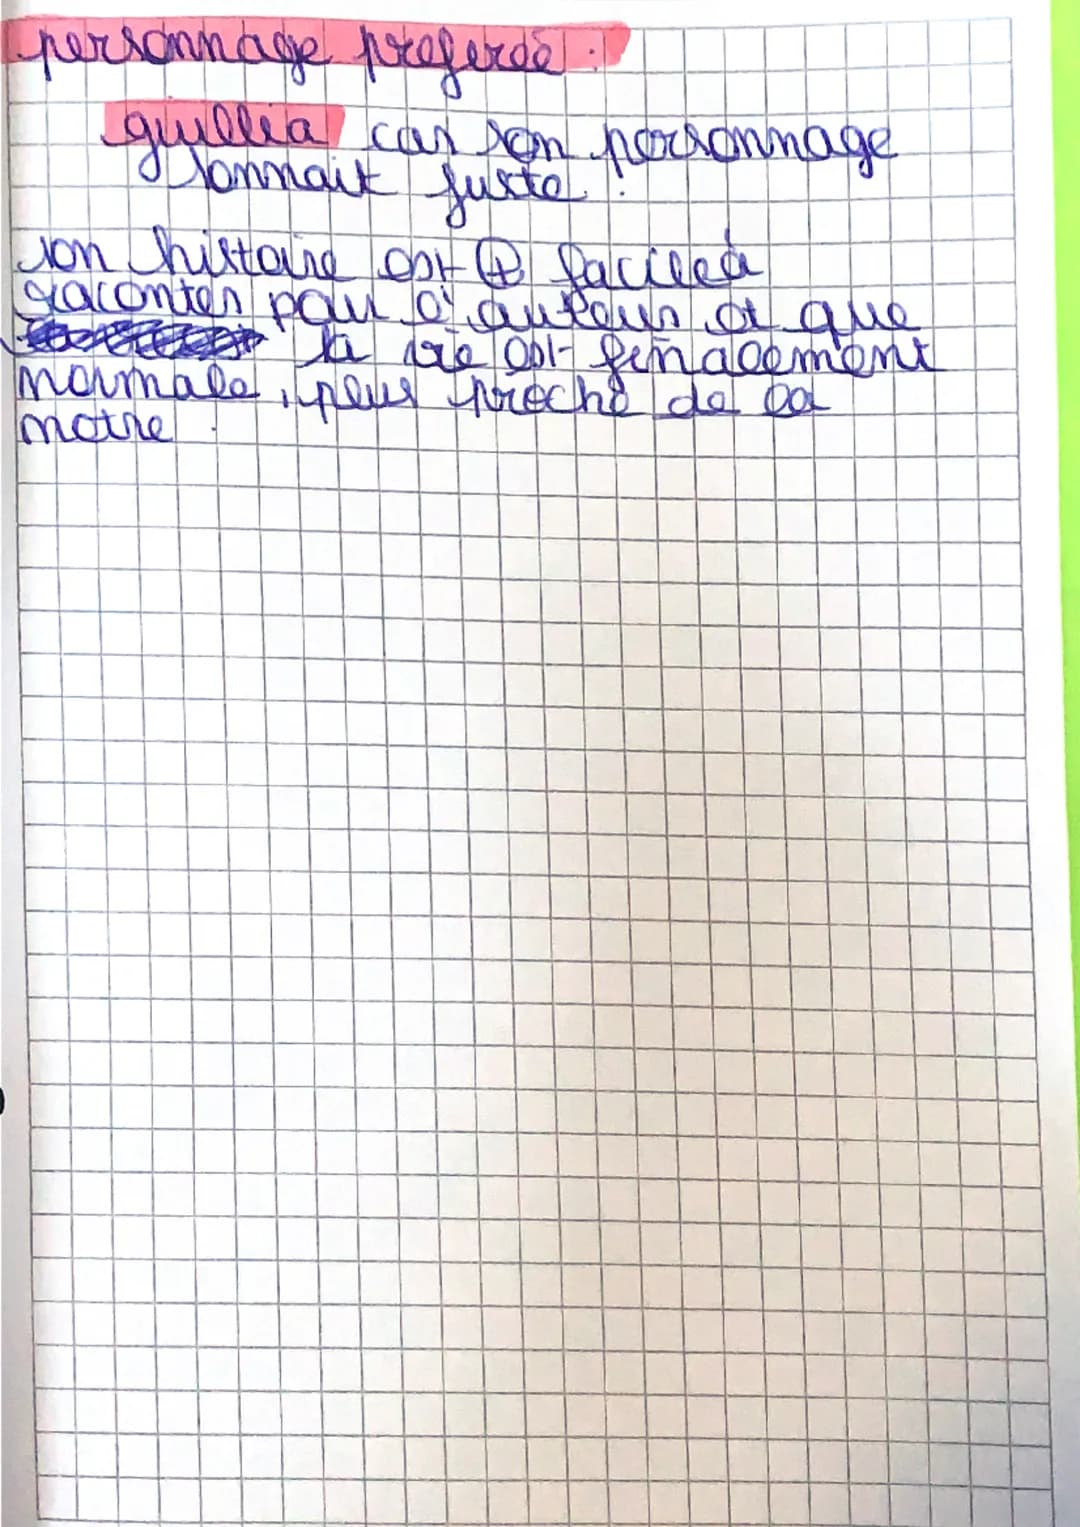 personnage preferée :
giullia car son personnage
sonnait juste !
son histoire est ⊕ facile à
raconter pour l'auteur et que
sa vie est finalement
normale, plus proche de la
notre.